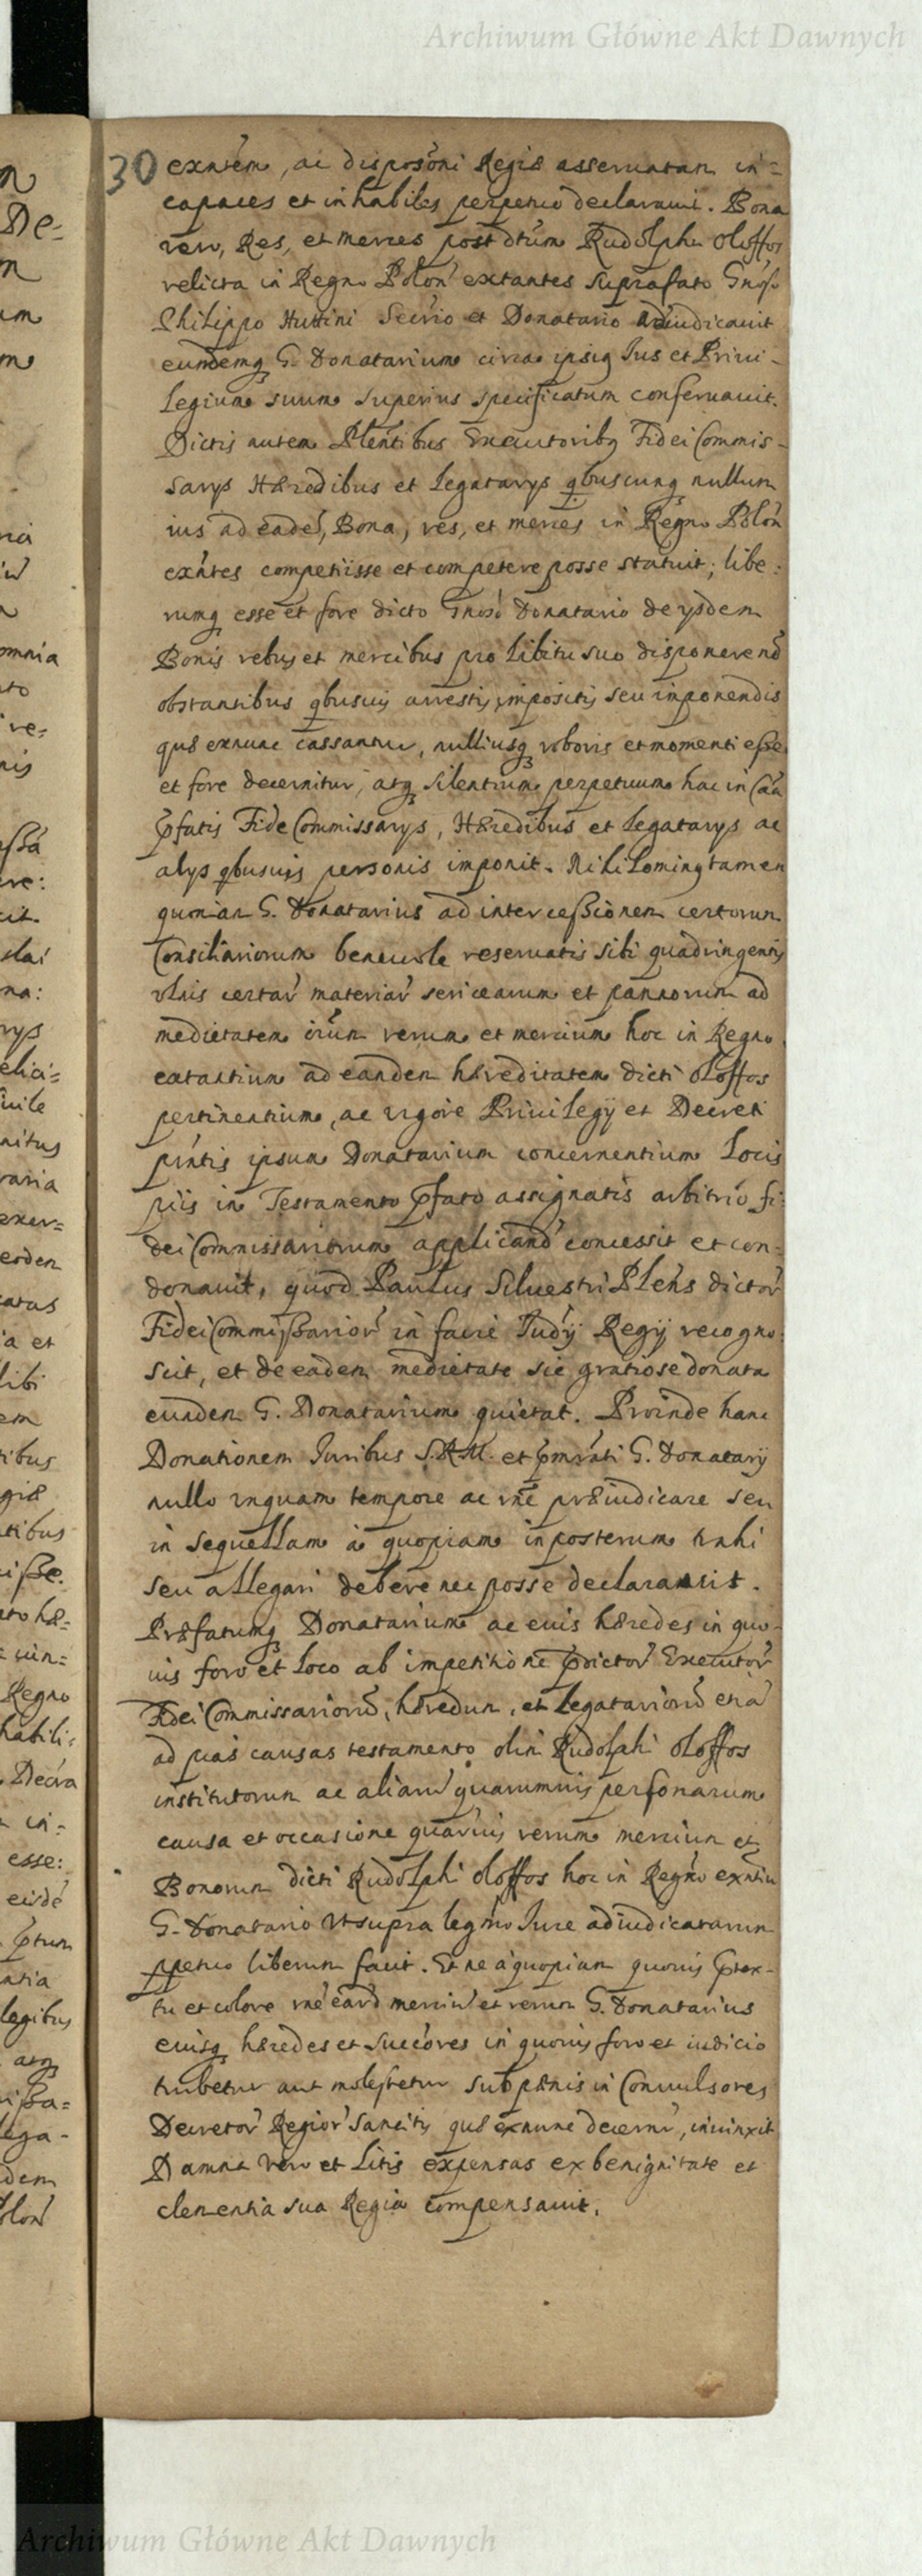 Archiwum Główne Akt Dawnych
30 exntem, ac disposoni Regis asseruatam in=
capaces et inhabiles perpetuo declarauit. Bona
vero, Res, et merces post dtum Rudolphu Oloffos
relicta in Regno Polon extantes suprafato Gnoso
Philippo Huttini Secrio et Donatario adiudicauit
eundemq G. Donatarium circa ipsig Ius et Priui-
legium suum superius specificatum conseruauit.
Dictis autem Plentibus Executoribg Fidei Commis-
sarys Hæredibus et Legatarys qbuscunq nullum
ius ad eade, Bona, res, et merces in Regno Polon
exntes competiisse et competere posse statuit; libe:
rumq esse et fore dicto Gnoso Donatario de ysdem
Bonis rebus et mercibus pro libitu suo disponere no
obstantibus qbusuis arrestis impositis seu imponendis
quæ exnunc cassantur, nulliusq roboris et momenti esse
et fore decernitur, atq silentium perpetuum hac in Caa
pfatis Fide Commissarys, Hæredibus et Legatarys ac
alys qbusuis personis imponit. Nihilominq tamen
quoniam G. Donatarius ad intercessionem certorum
Consiliariorum beneuole reseruatis sibi quadringentis
vlnis certar materiar sericearum et pannorum ad
medietatem oium rerum et mercium hoc in Regno
extantium ad eandem hæreditatem dicti Oloffos
pertinentium, ac vigore Priuilegij et Decreti
pntis ipsum Donatarium concernentium Locis
piis in Testamento pfato assignatis arbitrio fi:
dei Commissariorum applicand concessit et con-
donauit, quod Paulus Siluestri Plens dictor
Fidei Commissarior in facie Iudij Regij recogno:
scit, et de eadem medietate sic gratiose donata
eundem G. Donatarium quietat. Proinde hanc
Donationem Iuribus S.R.M. et pmrati G. Donatarij
nullo vnquam tempore ac rne præiudicare seu
in sequellam a quopiam inposterum trahi
seu allegari debere nec posse declarauit.
Præfatumq Donatarium ac euis hæredes in quo-
uis foro et loco ab impetitione pdictor Executor
Fidei Commissarioru, hæredum, et Legatarioru etia
ad pias causas testamento olim Rudolphi Oloffos
institutorum ac aliaru quarumuis personarum
causa et occasione quaruis rerum mercium et
Bonorum dicti Rudolphi Oloffos hoc in Regno exntiu
G. Donatario vt supra legmo Iure adiudicatarum
ppetuo liberum facit. Et ne a quopiam quouis ptex-
tu et colore rne earu merciu et rerum G. Donatarius
euisq hæredes et Succores in quouis foro et iudicio
turbetur aut molestetur sub pænis in Conuulsores
Decretor Regior sancitis quæ exnunc decernr, inuinxit
Damna vero et Litis expensas ex benignitate et
clementia sua Regia compensauit.
Archiwum Główne Akt Dawnych